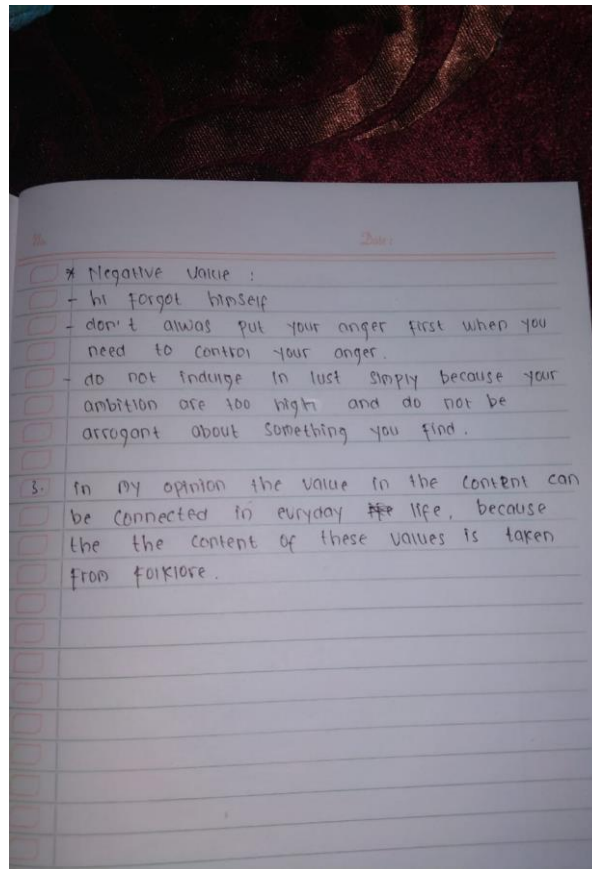 No
Date :
* Negative value :
- hi forgot himself
- don't alwas put your anger first when you
need to control your anger.
- do not indulge in lust simply because your
ambition are too high and do not be
arrogant about something you find.
3. in my opinion the value in the content can
be connected in euryday life, because
the the content of these values is taken
from folklore.